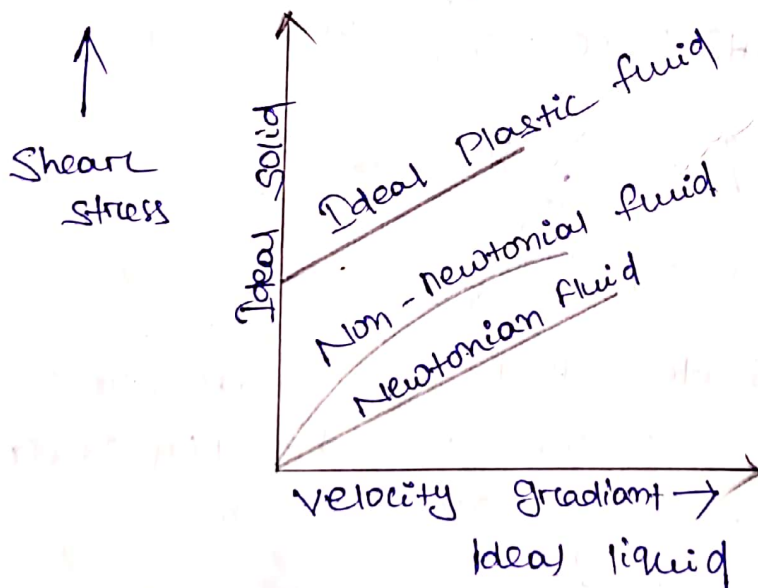 Shear
stress
Ideal Solid
Ideal Plastic fluid
Non-newtonial fluid
Newtonian fluid
velocity gradiant →
Ideal liquid